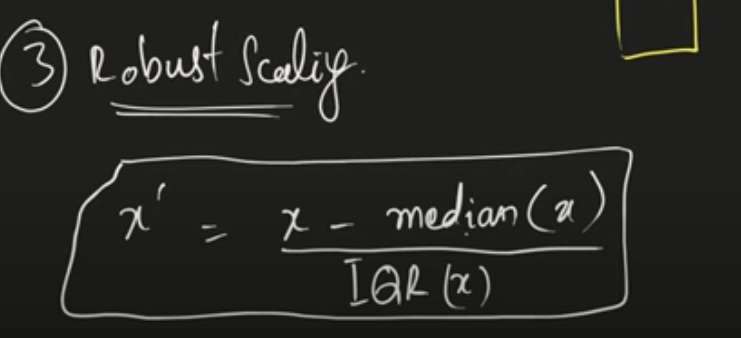 ③ Robust Scaling.
x' = x - median(x)
IQR(x)